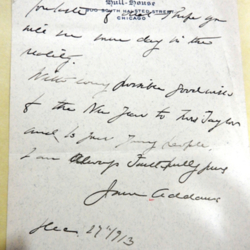 Hull-House
800 South Halsted Street
Chicago
you
see one day in the
reality.
With every possible good wish
of the New Year to Mrs Taylor
and to your young people
I am always faithfully yours
Jane Addams
Dec 27" 1913